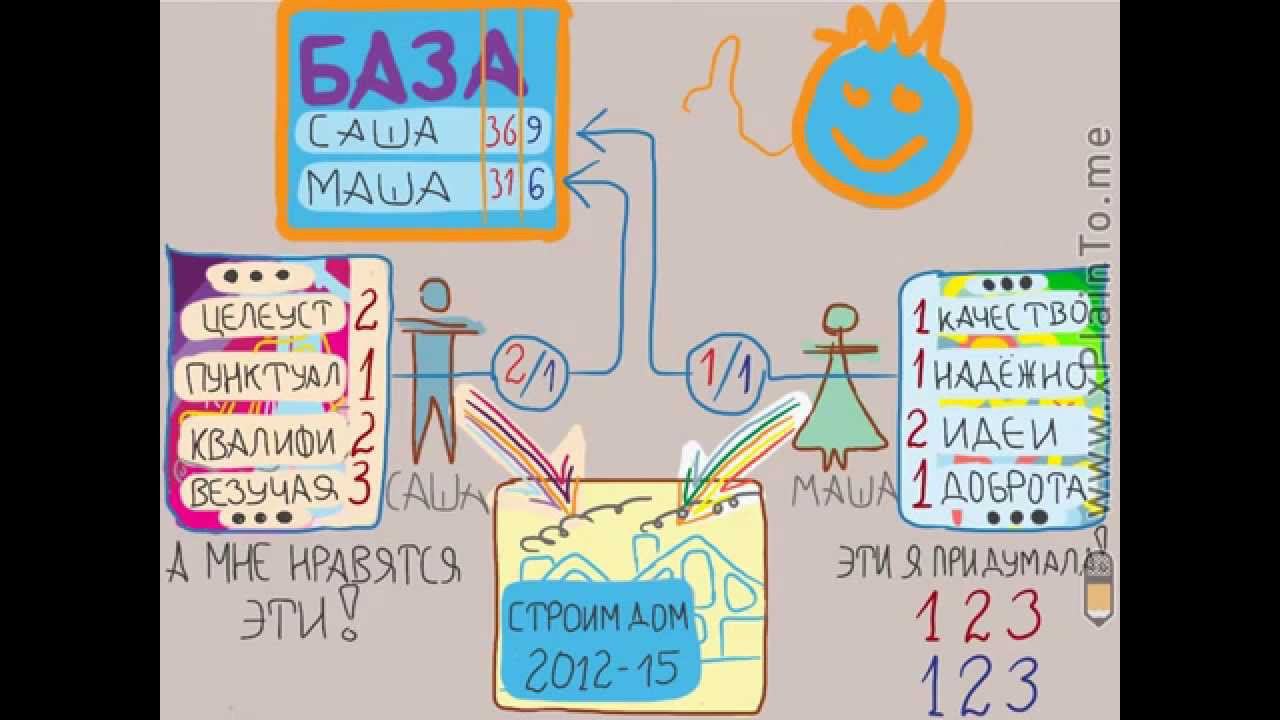 БАЗА
САША 36 9
МАША 31 6
ЦЕЛЕУСТ 2
ПУНКТУАЛ 1
КВАЛИФИ 2
ВЕЗУЧАЯ 3
САША
2/1
1/1
МАША
1 КАЧЕСТВО
1 НАДЁЖНО
2 ИДЕИ
1 ДОБРОТА
А МНЕ НРАВЯТСЯ
ЭТИ!
СТРОИМ ДОМ
2012-15
ЭТИ Я ПРИДУМАЛА
1 2 3
1 2 3
www.xPlainTo.me